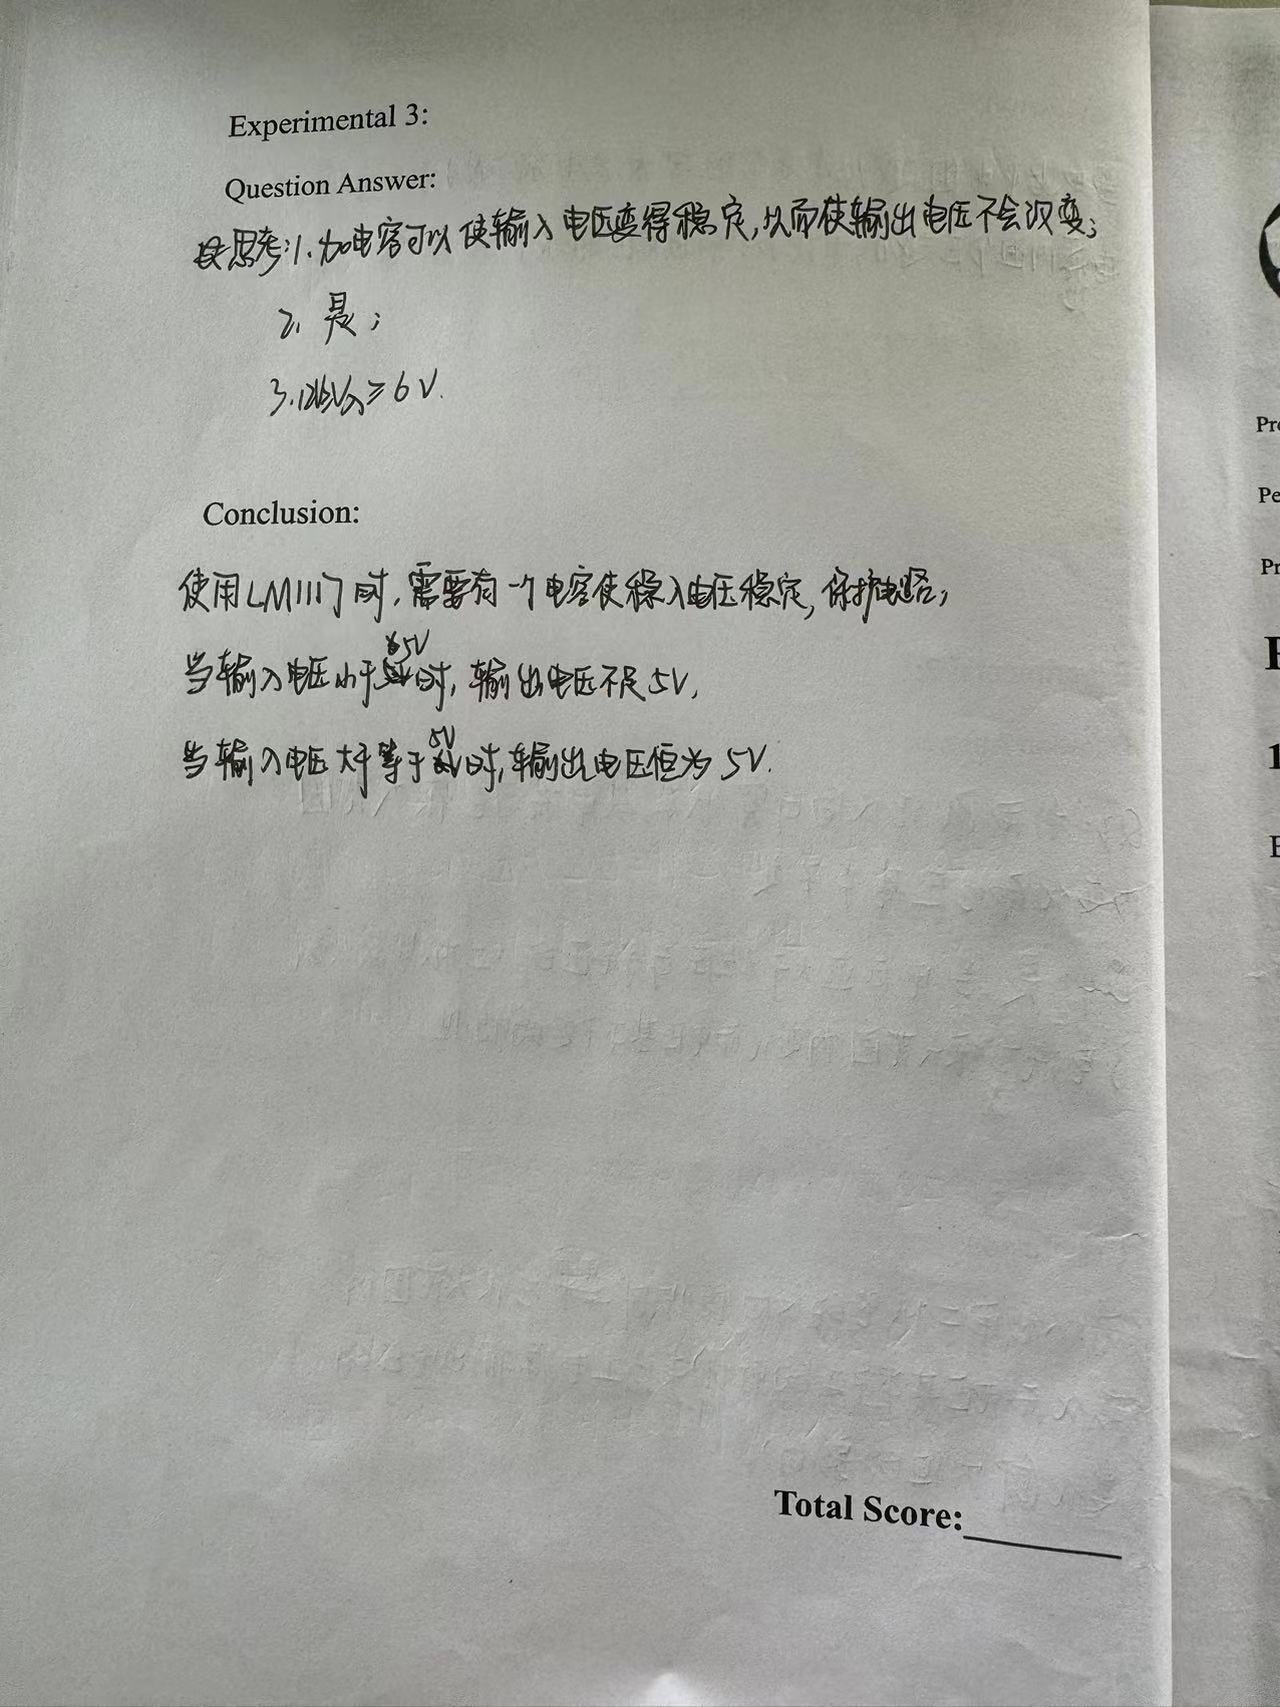 Experimental 3:
Question Answer:
思考:1.加电容可以使输入电压变得稳定,从而使输出电压不会汉变;
2. 是;
3.12≥V入≥6V.
Conclusion:
使用LM1117时,需要有一个电容使稳入电压稳定,保护电路;
当输入电压小于 5V 时,输出电压不足5V,
当输入电压大于等于 5V 时,输出电压恒为5V.
Total Score:
Pr
Pe
Pr
1